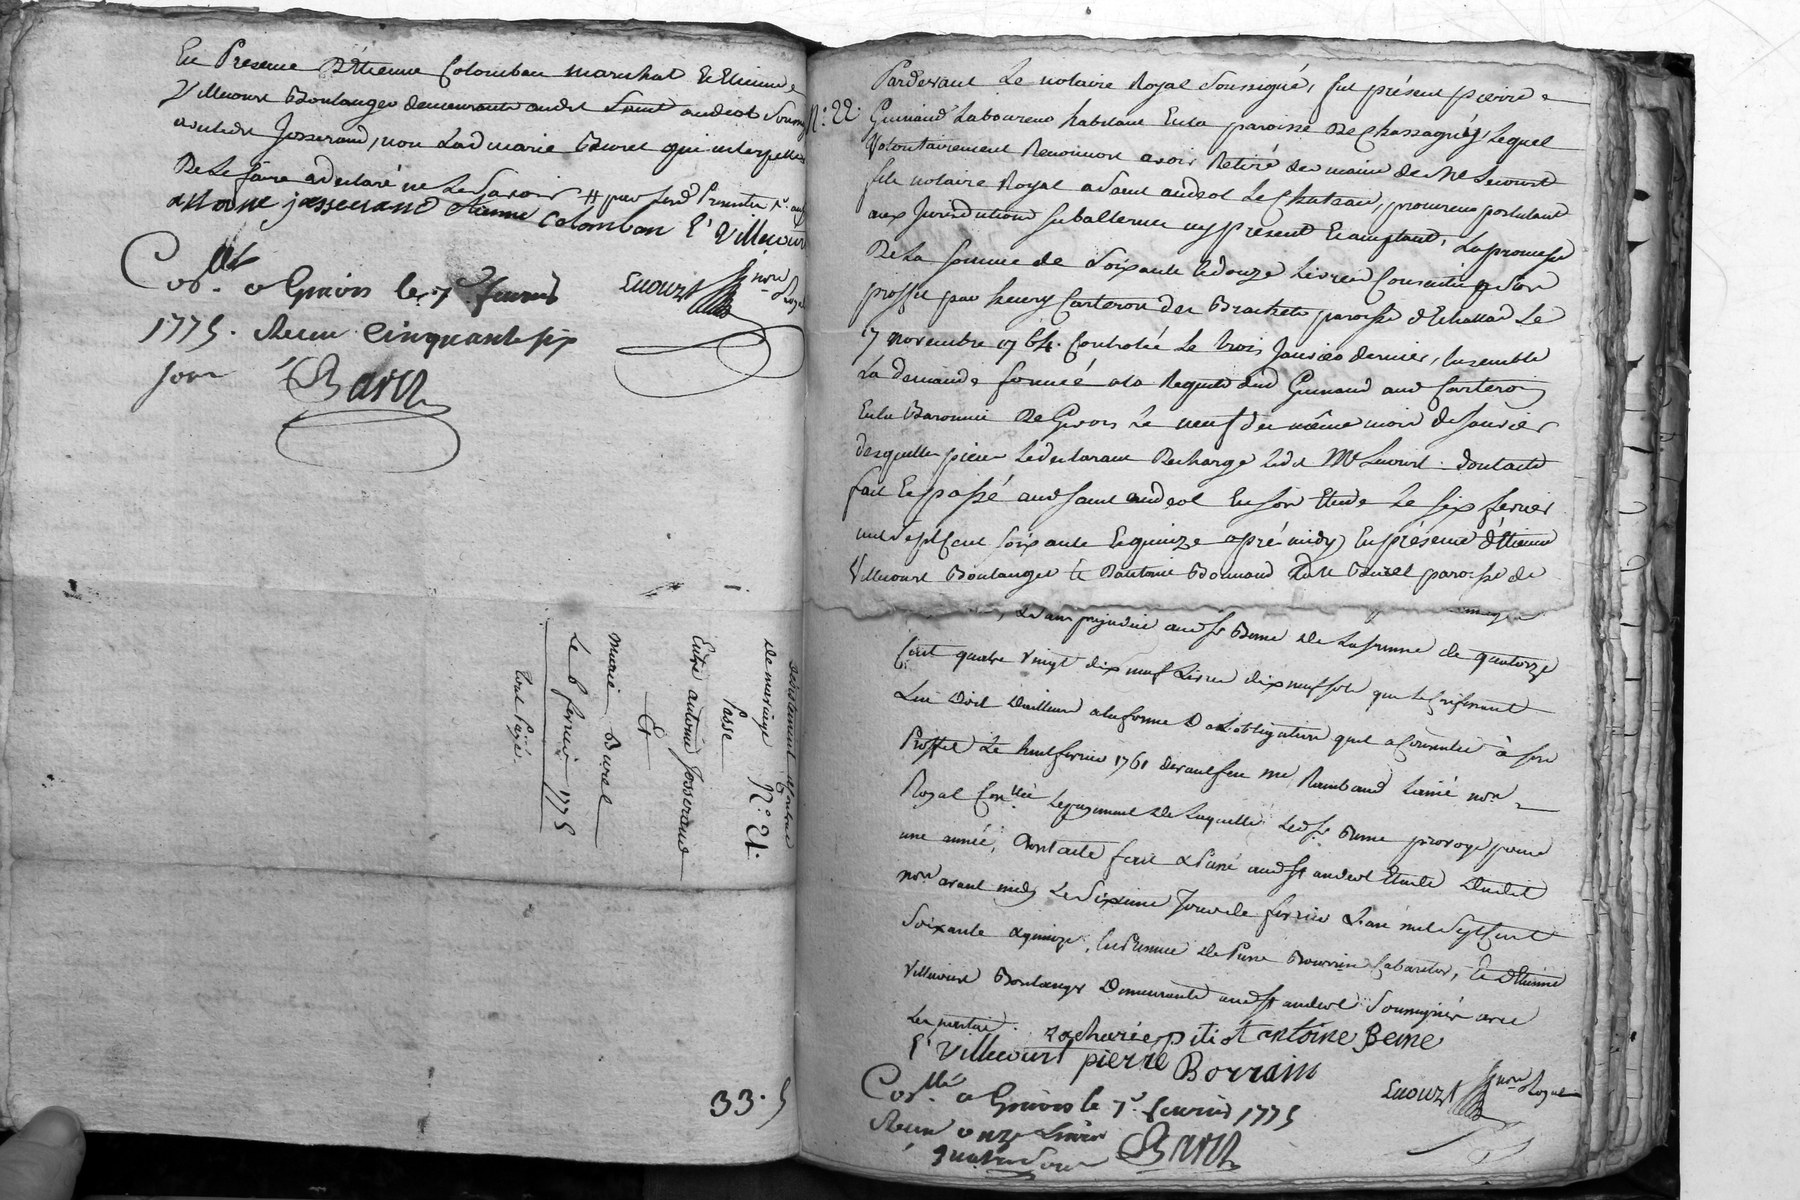 En Presence D'Etienne Colomban marechal & Etienne
Villecourt Boulanger demeurants audt Saint andeol
Josserand, non Lad marie Burel qui interpellée
De Le faire a declaré ne Le Savoir
antoine josserand Etienne Colomban E' Villecourt
Conllé a Givors le 7e fevrier
1775. Recu cinquante six
sous
Lecourt nore Royal
desistement
De mariage N° 21.
Passé
Entre antoine Josserand
&
Marie Burel
Le 6 fevrier 1775
Tout Payé.
33. 5
N° 22.
Pardevant Le notaire Royal Soussigné, fut présent pierre
Guinand Laboureur habitant En la paroisse De Chassagny, Lequel
Volontairement Reconnoit avoir Retiré des mains de Me Lecourt
fils notaire Royal a Saint andeol Le Chateau, procureur postulant
aux Jurisdictions subalternes cy present Et acceptant, La promesse
De La somme de soixante et douze Livres Consentie a son
proffit par heury Carteron des Brachets paroisse d'Echallas Le
17 novembre 1764. Controlée Le trois Janvier dernier, Ensemble
La demande formée a la Requete dud Guinand aud Carteron
En la Baronnie De Givors Le neuf du même mois de Janvier
desquelles pieces Le declarant Decharge Led Me Lecourt. dont acte
fait Et passé aud saint andeol En son Etude Le six fevrier
mil sept Cent soixante Et quinze après midy En présence d'Etienne
Villecourt Boulanger & Bonnand Burel paroisse de
Sans prejudice aud Sr Beme De La somme de quatorze
Cent quatre vingt dix neuf Livres dix neuf sols que
Lui Doit D'ailleurs a la forme De L'obligation qu'il a Consentie à son
Proffit Le huit fevrier 1761 devant feu me Raimbaud L'ainé nore
Royal Conllée Le payement De Laquelle Led Sr Beme proroge pour
une année, Dont acte fait & Passé aud St andeol Etude Dudit
nore avant midy Le Sixieme Jour de fevrier L'an mil Sept Cent
Soixante & quinze, En Presence De Pierre Bourrin Cabaretier, & d'Etienne
Villecourt Boulanger Demeurants aud St andeol Soussignés avec
Les parties. zacharie pitiot antoine Beme
E' Villecourt pierre Borrain
Lecourt nore Royal
Conllé a Givors le 7e fevrier 1775
Recu onze Livres
quatre sous